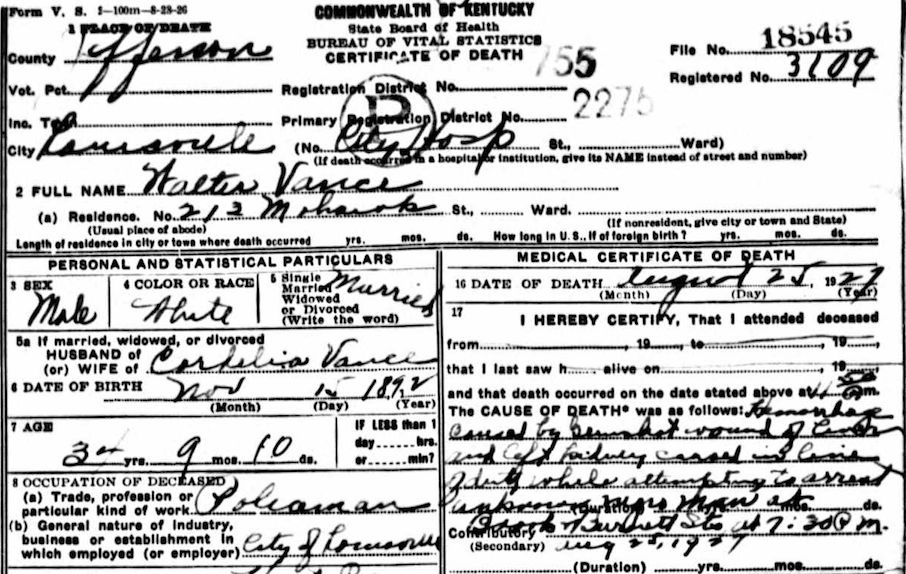 Form V. S. 1-100m-8-28-26
COMMONWEALTH OF KENTUCKY
State Board of Health
BUREAU OF VITAL STATISTICS
CERTIFICATE OF DEATH
1 PLACE OF DEATH
County Jefferson
File No. 18545
755
Registered No. 3109
Vot. Pct.
Registration District No.
Inc. T
Primary Registration District No. 2275
City Louisville (No. City Hosp St., Ward)
(If death occurred in a hospital or institution, give its NAME instead of street and number)
2 FULL NAME Walter Vance
(a) Residence. No. 213 Mohawk St., Ward.
(Usual place of abode) (If nonresident, give city or town and State)
Length of residence in city or town where death occurred yrs. mos. ds. How long in U. S., if of foreign birth? yrs. mos. ds.
PERSONAL AND STATISTICAL PARTICULARS
3 SEX Male
4 COLOR OR RACE White
5 Single
Married
Widowed
or Divorced
(Write the word)
Married
5a If married, widowed, or divorced
HUSBAND of
(or) WIFE of Cordelia Vance
6 DATE OF BIRTH Nov 15 1892
(Month) (Day) (Year)
7 AGE
34 yrs. 9 mos. 10 ds.
IF LESS than 1
day hrs.
or min?
8 OCCUPATION OF DECEASED
(a) Trade, profession or
particular kind of work Policaman
(b) General nature of industry,
business or establishment in
which employed (or employer) City of Louisville
MEDICAL CERTIFICATE OF DEATH
16 DATE OF DEATH August 25, 1927
(Month) (Day) (Year)
17
I HEREBY CERTIFY, That I attended deceased
from 19 to 19
that I last saw h alive on 19
and that death occurred on the date stated above at 11 P m.
The CAUSE OF DEATH* was as follows: Hemorrhage
caused by Gunshot wound of Liver
and Left kidney caused in line
of duty while attempting to arrest
unknown man at
(Duration) mos. ds.
Brook & Burnett Sts at 7:30 P.M.
Contributory Aug 25, 1927
(Secondary)
(Duration) yrs. mos. ds.